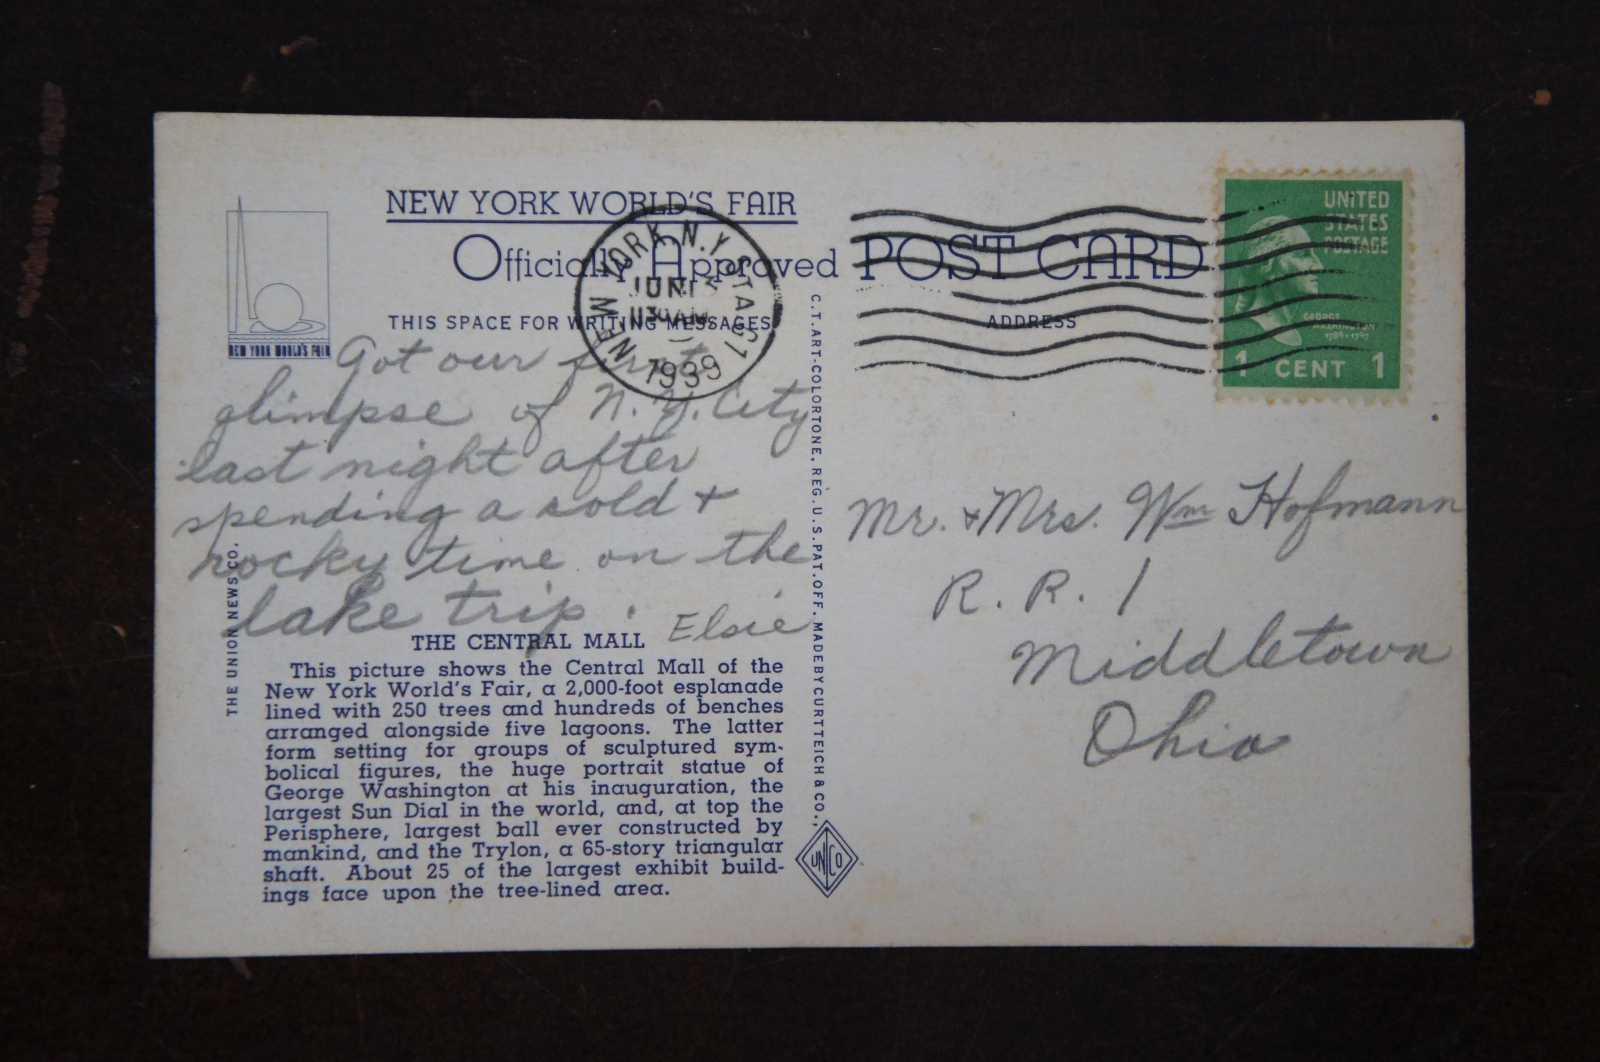 NEW YORK WORLD'S FAIR
Officially Approved POST CARD
THIS SPACE FOR WRITING MESSAGES
ADDRESS
NEW YORK WORLD'S FAIR
NEW YORK, N.Y. STA. 51
JUN 1
11 30 AM
1939
UNITED
STATES
POSTAGE
GEORGE
WASHINGTON
1789-1797
1 CENT 1
Got our first
glimpse of N.Y. City
last night after
spending a cold +
rocky time on the
lake trip.
Elsie
Mr. + Mrs. Wm Hofmann
R. R. 1
Middletown
Ohio
THE UNION NEWS CO.
THE CENTRAL MALL
This picture shows the Central Mall of the
New York World's Fair, a 2,000-foot esplanade
lined with 250 trees and hundreds of benches
arranged alongside five lagoons. The latter
form setting for groups of sculptured sym-
bolical figures, the huge portrait statue of
George Washington at his inauguration, the
largest Sun Dial in the world, and, at top the
Perisphere, largest ball ever constructed by
mankind, and the Trylon, a 65-story triangular
shaft. About 25 of the largest exhibit build-
ings face upon the tree-lined area.
C.T. ART-COLORTONE, REG. U.S. PAT. OFF. MADE BY CURT TEICH & CO.,
UNCO